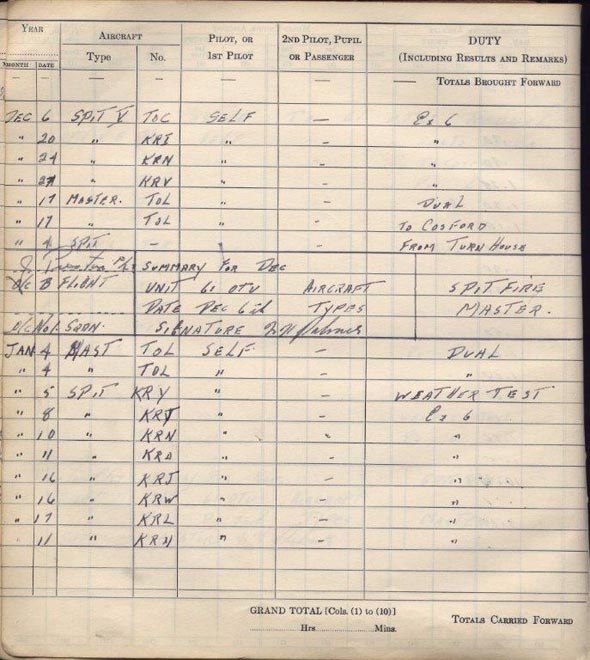 YEAR AIRCRAFT PILOT, OR 2ND PILOT, PUPIL DUTY
MONTH DATE Type No. 1ST PILOT OR PASSENGER (INCLUDING RESULTS AND REMARKS)
— — — — — — — TOTALS BROUGHT FORWARD
DEC 6 SPIT V TOC SELF — Ex 6
" 20 " KRI " – "
" 24 " KRN " – "
" 27 " KRV " – "
" 17 MASTER. TOL " – DUAL
" 17 " TOL " – TO COSFORD
" 4 SPIT – " – FROM TURN HOUSE
SUMMARY FOR DEC
O/C B FLIGHT UNIT 61 OTU AIRCRAFT SPITFIRE
DATE DEC TYPES MASTER.
O/C No1. SQDN. SIGNATURE
JAN 4 MAST TOL SELF – DUAL
" 4 " TOL " – "
" 5 SPIT KRY " – WEATHER TEST
" 8 " KRT " – Ex 6
" 10 " KRN " – "
" 11 " KRA " – "
" 16 " KRJ " – "
" 16 " KRW " – "
" 17 " KRL " – "
" 11 " KRN " – "
GRAND TOTAL [Cols. (1) to (10)] TOTALS CARRIED FORWARD
Hrs Mins.